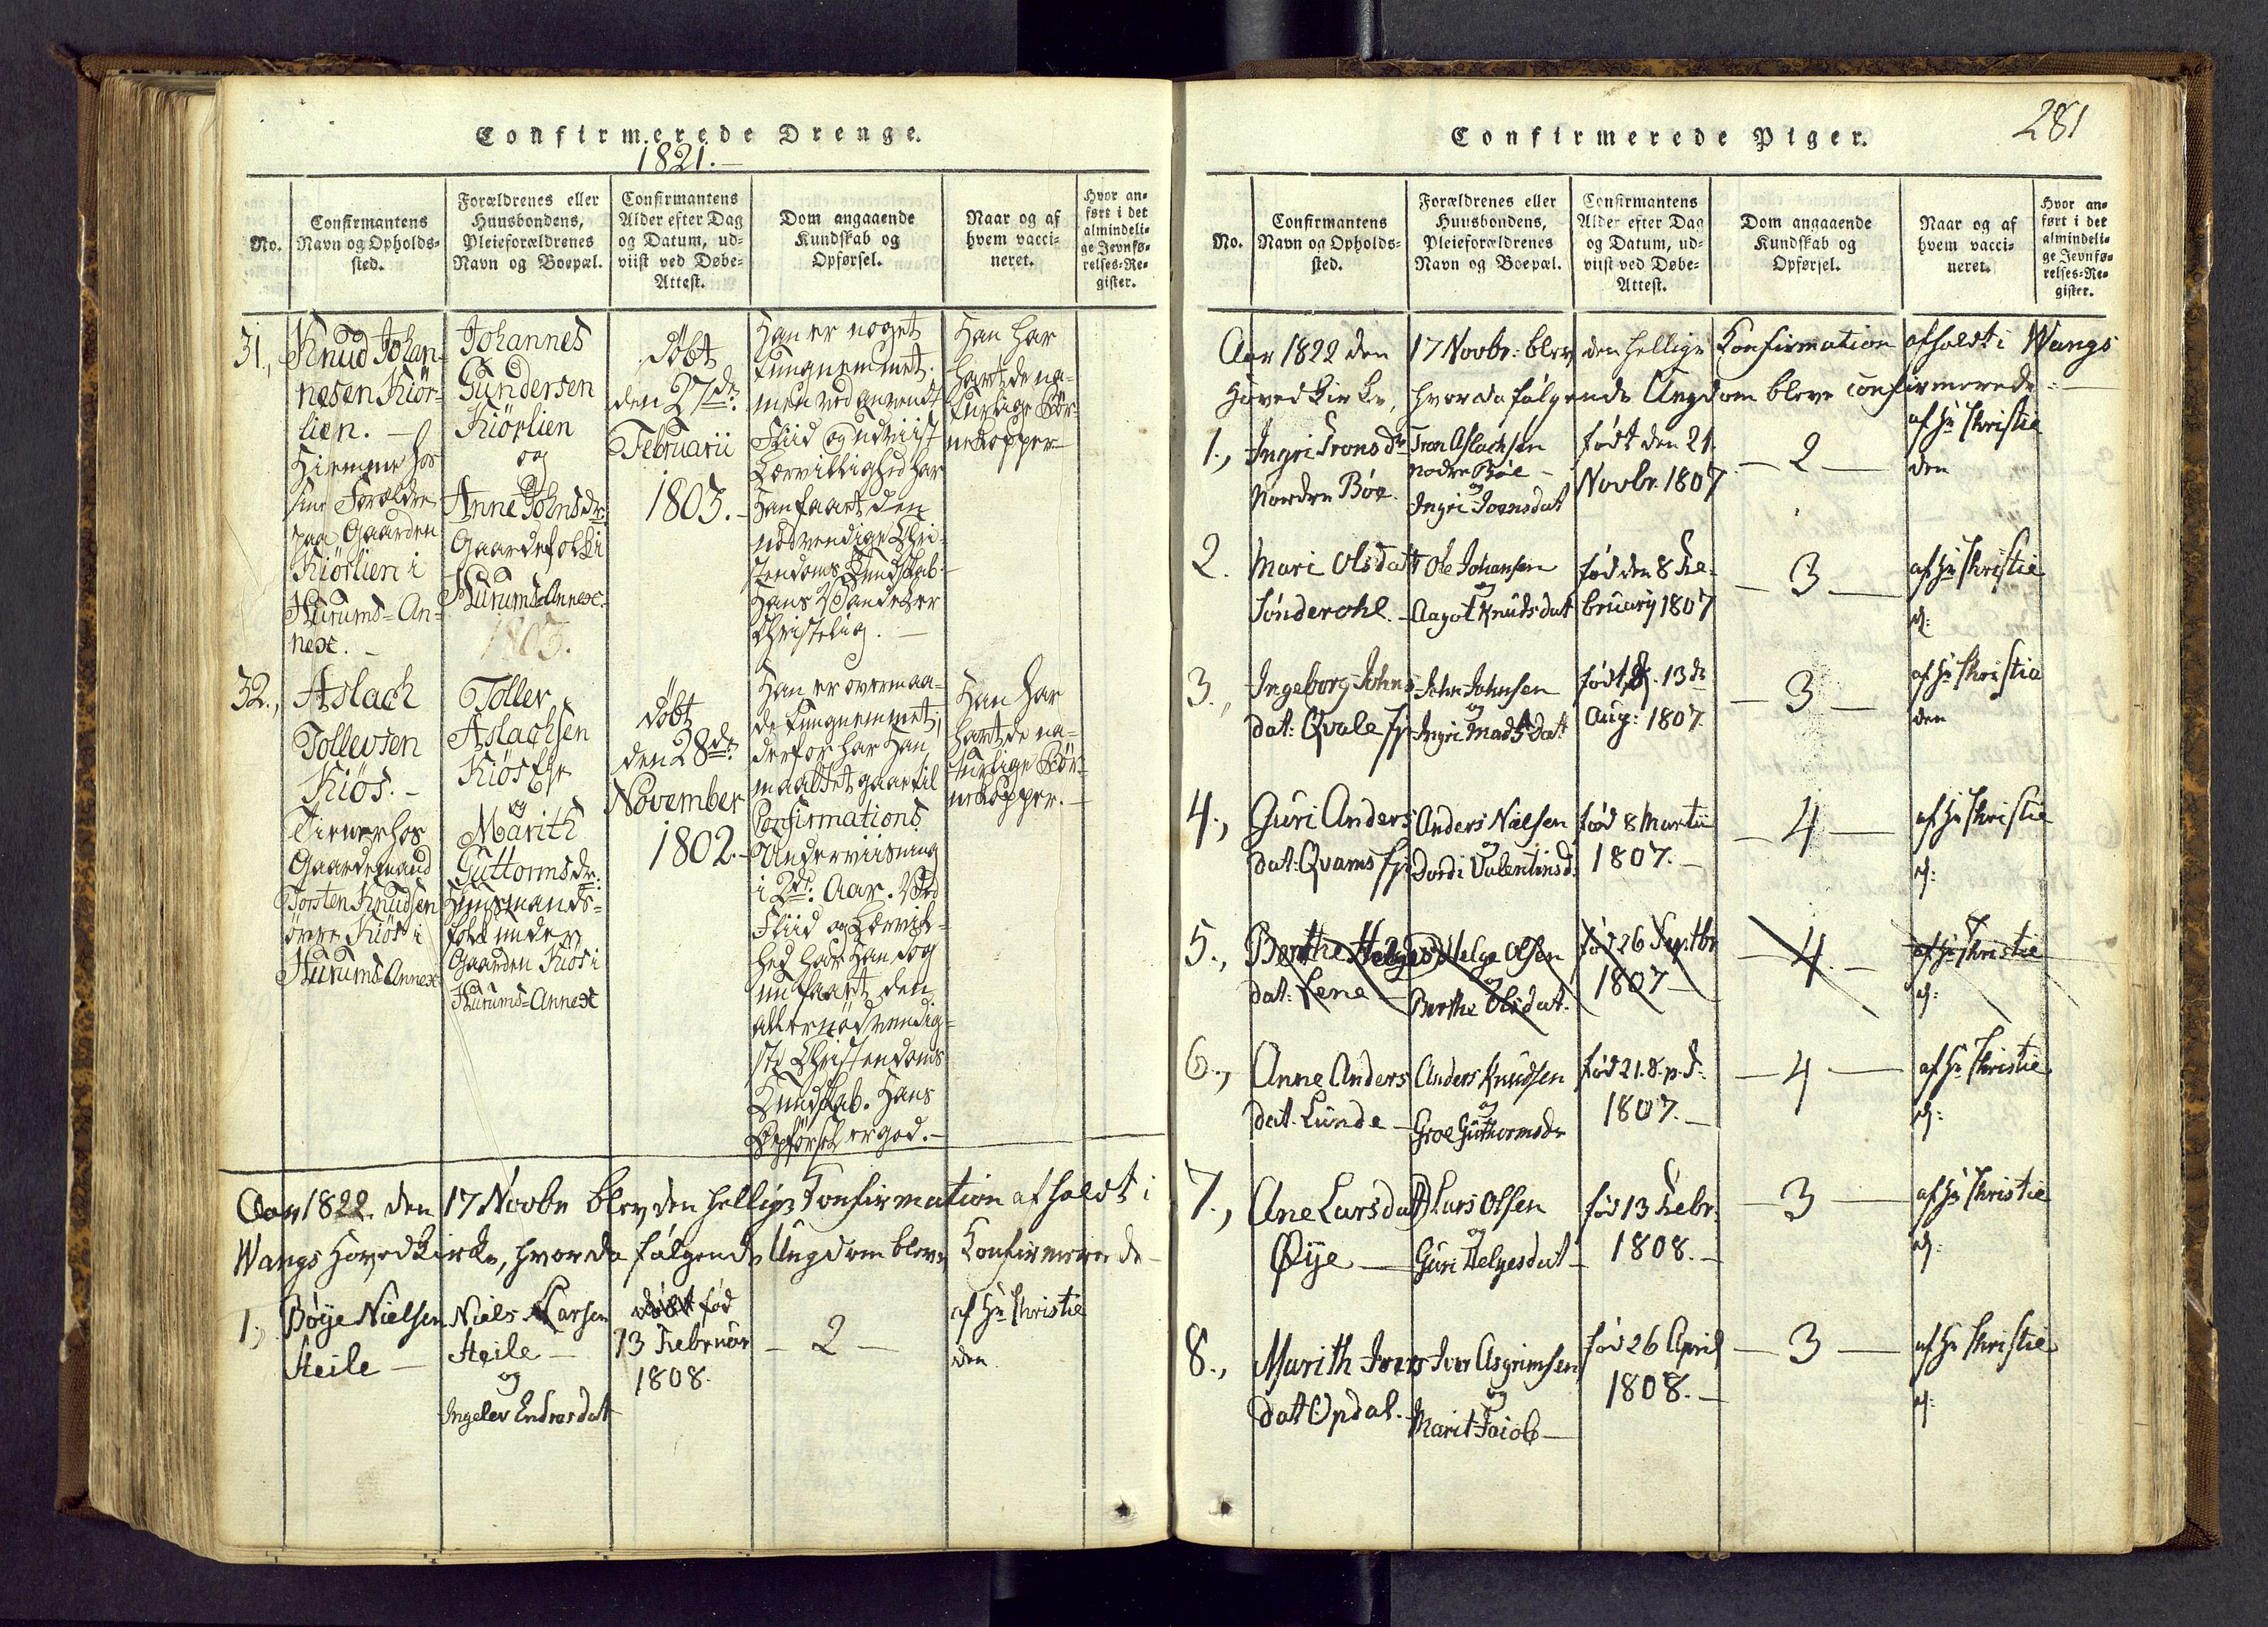 Confirmerede Drenge.
1821.
No.
Confirmantens
Navn og Opholds-
sted.
Forældrenes eller
Huusbondens,
Pleieforældrenes
Navn og Boepæl.
Confirmantens
Alder efter Dag
og Datum, ud-
viist ved Døbe-
Attest.
Dom angaaende
Kundskab og
Opførsel.
Naar og af
hvem vacci-
neret.
Hvor an-
ført i det
almindeli-
ge Jevnfø-
relses-Re-
gister.
31.,
Knud Johan-
nesen Kiör-
lien.
Hiemme hos
sine Forældre
paa Gaarden
Kiörlien i
Hurums-An-
nex.
Johannes
Gundersen
Kiörlien
og
Anne Johnsdr
Gaardefolk i
Hurums-Annex.
1803.
döbt
den 27de
Februarii
1803.
Han er noget
tungnemmet.
men ved anvendt
Fliid og udviist
Lærvillighed har
Han faaet den
nødvendige Chri-
stendoms Kundskab.
Hans Vandel er
Christelig.
Han har
havt de na-
turlige Bør-
nekopper
32.,
Aslach
Tollevsen
Kiös.
Tiener hos
Gaardemand
Torsten Knudsen
övre Kiös i
Hurums-Annex
Tollev
Aslachsen
Kiös Eje
og
Marith
Guttormsdr:
Huusmands-
folk under
Gaarden Kiös i
Hurums-Annex
döbt
den 28de
November
1802.
Han er overmaa-
de tungnemmet,
derfor har Han
maattet gaae til
Confirmations
Underviisning
i 2det Aar. Ved
Fliid og Lærvil-
hed har Han dog
nu faaet den
allernødvendig-
ste Christendoms
Kundskab. Hans
Opførsel er god.
Han har
havt de na-
turlige Bør-
nekopper.
Aar 1822. den 17 Novbr blev den hellige Confirmation afholdt i
Wangs Hovedkirke, hvor da følgende Ungdom bleve Konfirmerede
1.,
Böye Nielsen
Heile
Niels Larsen
Heile
og
Ingelev Endresdat
født fød
13 Februar
1808.
2
af Hr Christie
den
Confirmerede Piger.
281
No.
Confirmantens
Navn og Opholds-
sted.
Forældrenes eller
Huusbondens,
Pleieforældrenes
Navn og Boepæl.
Confirmantens
Alder efter Dag
og Datum, ud-
viist ved Døbe-
Attest.
Dom angaaende
Kundskab og
Opførsel.
Naar og af
hvem vacci-
neret.
Hvor an-
ført i det
almindeli-
ge Jevnfø-
relses-Re-
gister.
Aar 1822 den 17 Novbr: blev den hellige Konfirmation afholdt i Wangs
Hovedkirke, hvor da følgende Ungdom bleve confirmerede:
1.,
Ingri Tronsdr
Nordre Böe.
Tron Aslachsen
nodre Böe
og
Ingri Joensdat
født den 21
Novbr. 1807
2
af Hr Christie
den
2.
Mari Olsdatt
Sönderohl.
Ole Johansen
og
Aagot Knudsdat
fød den 8 Fe-
bruary 1807
3
af Hr Christie
d:
3.,
Ingeborg Johns
dat: Qvale
John Johnsen
og
Ingri Mads dat
født d. 13de
Aug: 1807.
3
af Hr Christie
den
4.,
Guri Anders
dat: Qvams
Anders Nielsen
og
Dordi Valentinsd.
fød 8 Martii
1807.
4
af Hr Christie
d:
5.,
Berthe Helges
dat: Lene
Helge Olsen
Berthe Olsdat.
fød 26 Septbr
1807
4.
af Hr Christie
d:
6.,
Anne Anders
dat. Lunde
Anders Knudsen
og
Groe Guthormsdr
fød 21.
1807.
4
af Hr Christie
d:
7.,
Ane Larsdatt
Øye
Lars Olsen
og
Guri Helgesdat
fød 13 Febr.
1808.
3
af Hr Christie
d:
8.,
Marith Ivers
dat Opdal.
Iver Asgrimsen
og
Marit Jaiob
fød 26 April
1808.
3
af Hr Christie
d: